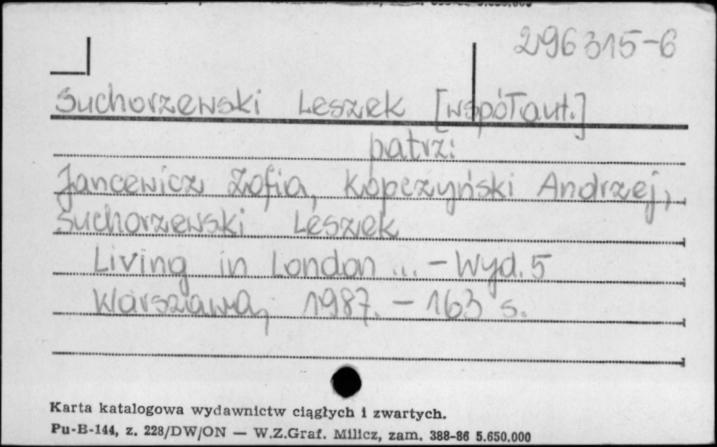 296315-6
Suchorzewski Leszek [współaut.]
patrz:
Jancewicz Zofia, Kopczyński Andrzej,
Suchorzewski Leszek
Living in London ... - Wyd. 5
Warszawa, 1987. - 163 s.
Karta katalogowa wydawnictw ciągłych i zwartych.
Pu-B-144, z. 228/DW/ON — W.Z.Graf. Milicz, zam. 388-86 5.650.000